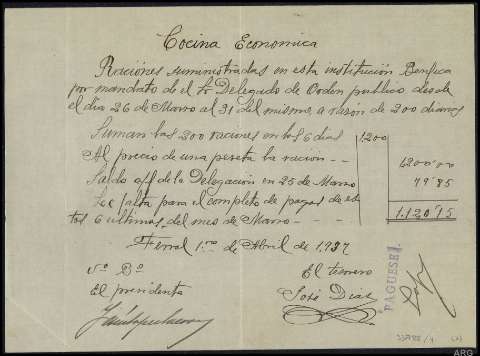 Cocina Economica
Raciones suministradas en esta institución Benfica
por mandato de el Sr Delegado de Orden publico desde
el dia 26 de Marzo al 31 del mismo, a razón de 200 diarias
Suman las 200 raciones en los 6 dias 1200
Al precio de una peseta la ración - - 1200'00
Saldo a/f de la Delegación en 25 de Marzo 79'85
Le falta para el completo de pagos de es
tos 6 ultimos del mes de Marzo - - - 1.120'15
Ferrol 1.ro de Abril de 1937
Vº Bº El tesorero
El presidente José Diaz
PAGUESE
ARG